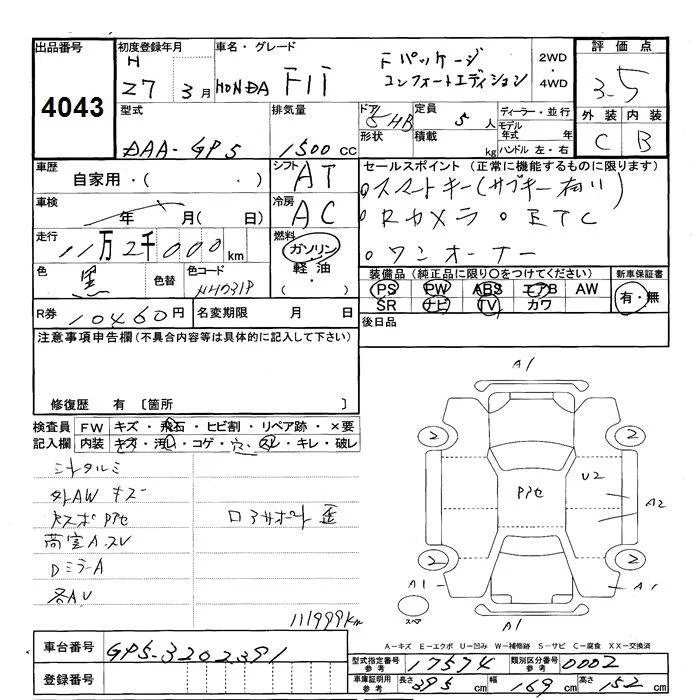 出品番号
4043
初度登録年月
H
27 3月
車名・グレード
HONDA FIT
Fパッケージ
コンフォートエディション
2WD
・
4WD
評価点
3.5
外装 内装
C B
型式
DAA-GP5
排気量
1500cc
ドア
5HB
形状
定員
5人
積載
kg
ディーラー・並行
モデル年式 年
ハンドル 左・右
車歴
自家用・( ・)
シフト
AT
車検
年 月(日)
冷房
AC
走行
11万2千000km
燃料
ガソリン
軽油
・
色
黒
色替
色コード
R券 10460円
名変期限 月 日
セールスポイント (正常に機能するものに限ります)
○スマートキー(サブキー有り)
○Rカメラ ○ETC
○ワンオーナー
装備品 (純正品に限り○をつけてください)
PS PW ABS エアB AW
SR ナビ TV カワ
新車保証書
有・無
後日品
注意事項申告欄(不具合内容等は具体的に記入して下さい)
修復歴 有〔箇所 〕
検査員記入欄
FW キズ・飛石・ヒビ割・リペア跡・×要
内装 キズ・汚・コゲ・穴・スレ・キレ・破レ
外AW キズ
DミラーA
各AU
ロアサポート歪
111999km
A1
2
2
U2
Pアセ
A2
2
2
A1
A1
スペ
A1
A-キズ E-エクボ U-凹み W-補修跡 S-サビ C-腐食 XX-交換済
車台番号 GP5-3202391
登録番号
型式指定番号 参考 17574
類別区分番号 参考 0002
車庫証明用 参考 長さ 395cm 幅 169cm 高さ 152cm